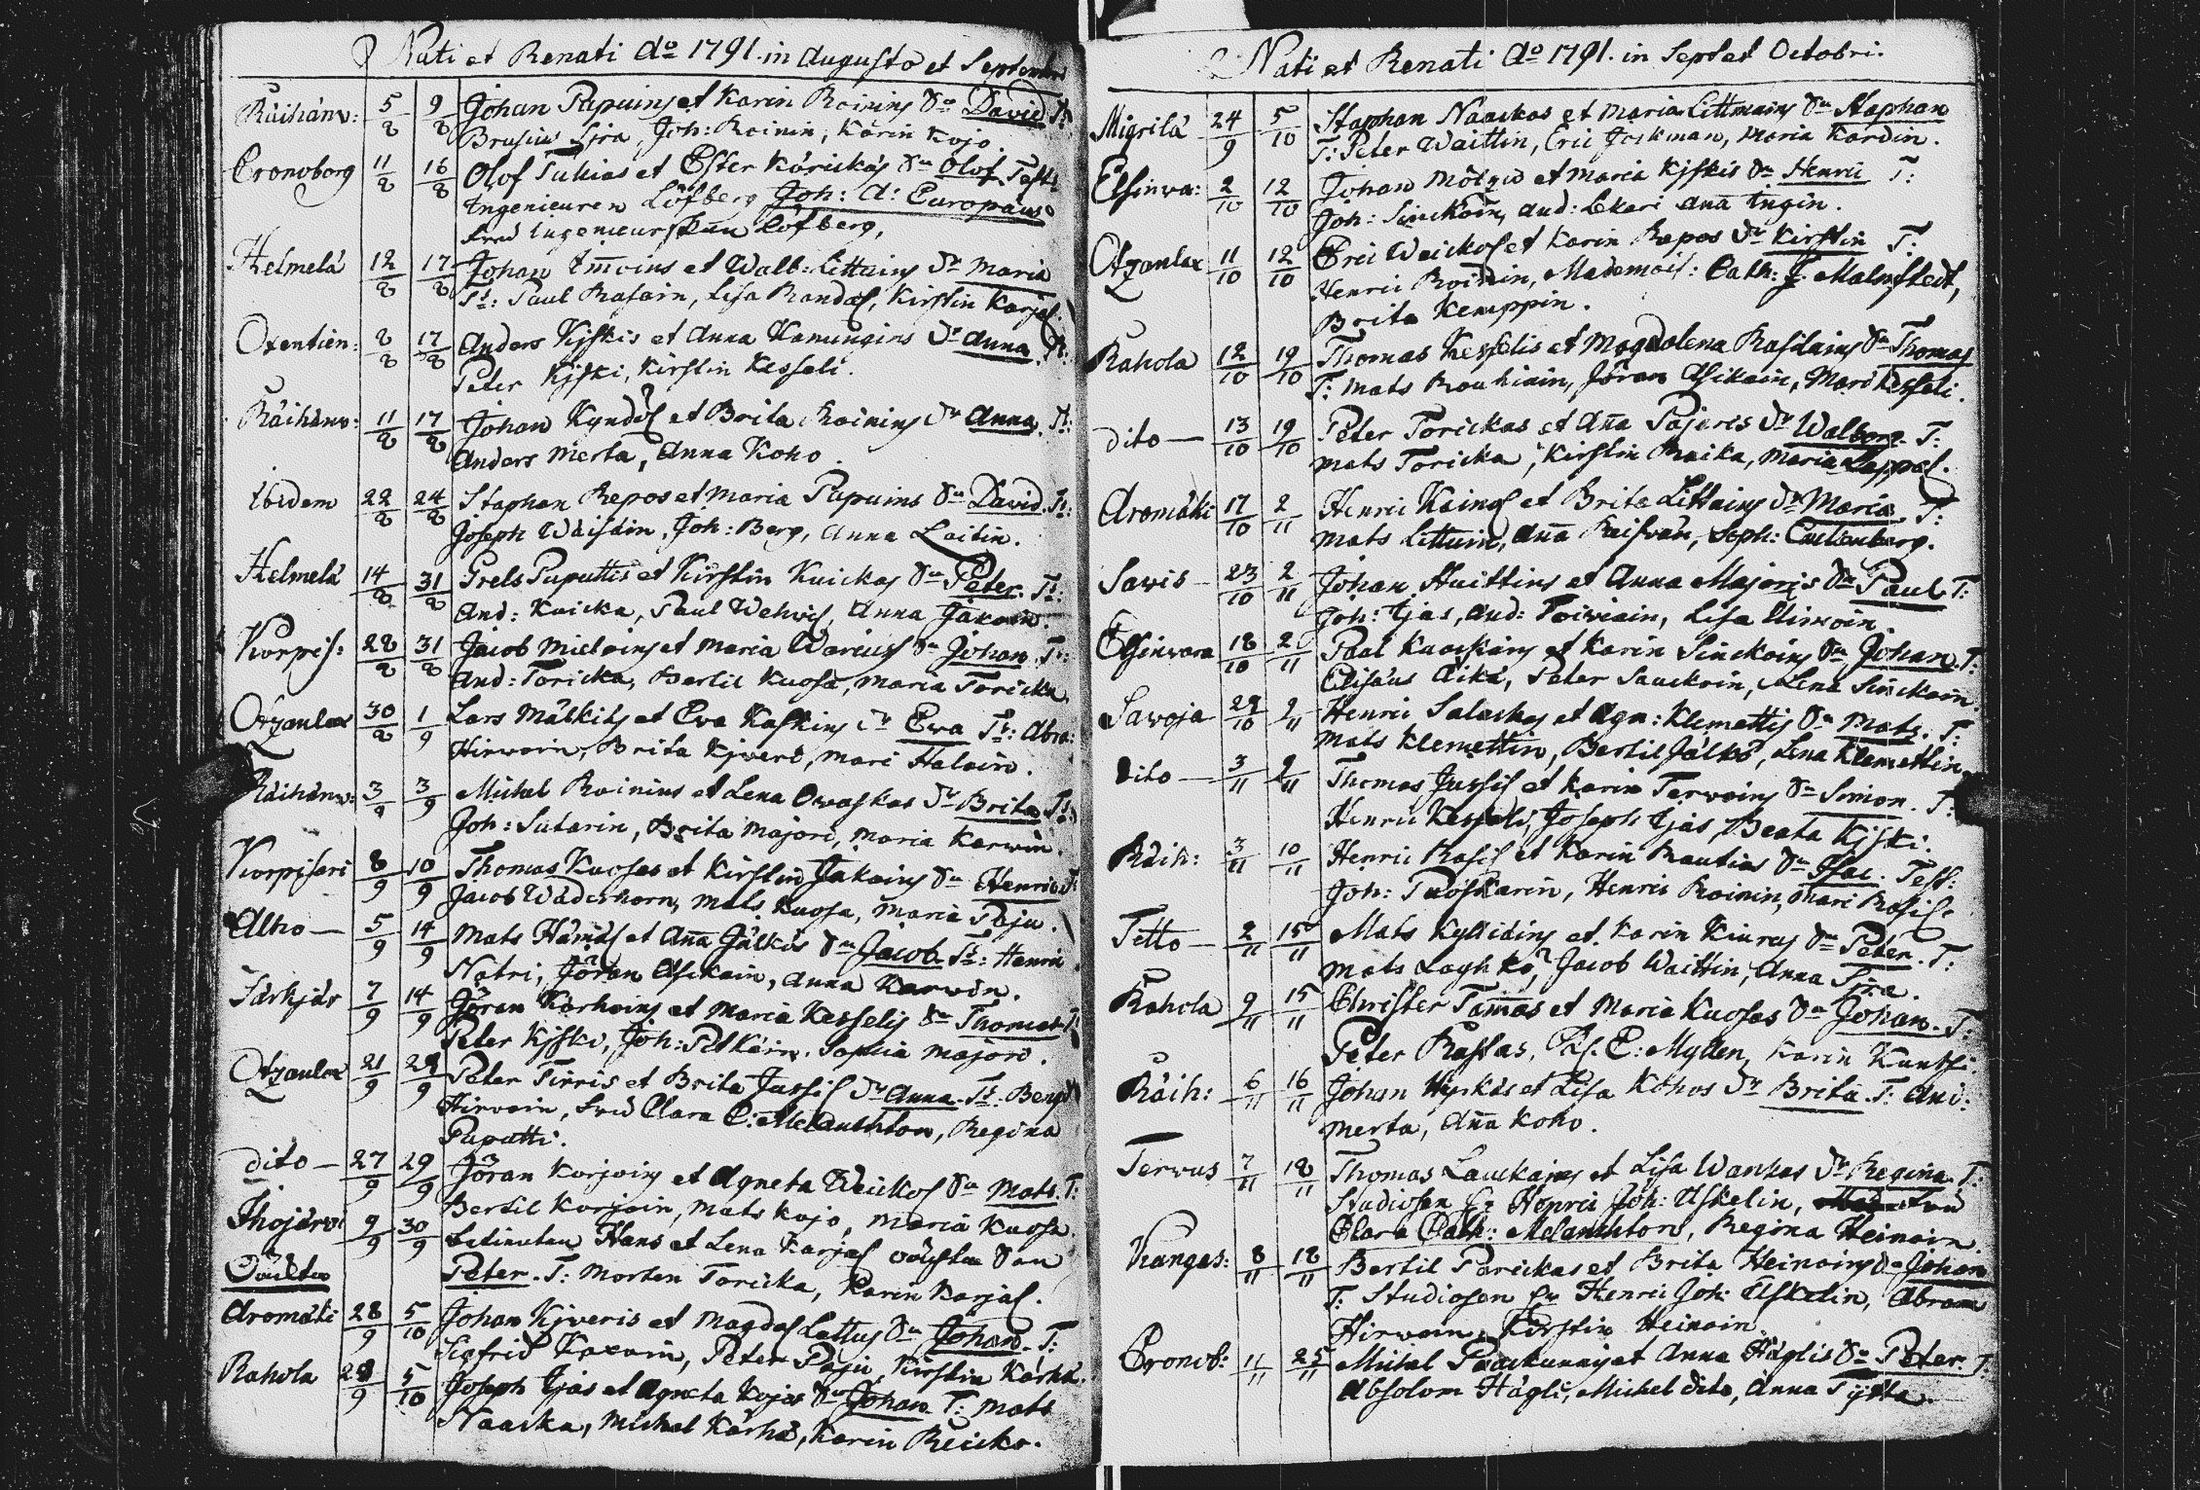 Nati et Renati Ao 1791. in Augusto et Septembri
Räihänv: 5/8 9/8 Johan Pupuins et Karin Roinins Sn David. Tt:
Brusius Sira, Joh: Roinin, Karin Kojo.
Cronoborg 11/8 16/8 Olof Tukias et Ester Kärickäs Sn Olof. Test:
Ingenieuren Löfberg Joh: A: Europæus
Fru Ingenieurskan Löfberg,
Helmelä 12/8 17/8 Johan Immoins et Walb: Littuins Dr Maria
Tt: Paul Rasain, Lisa Randal, Kirstin Karjal.
Oxentien: 8/8 17/8 Anders Kiskis et Anna Hamungins Dr Anna. Tt:
Peter Kiski, Kirstin Kesseli.
Räihänv: 11/8 17/8 Johan Kyndöl et Brita Roinins Dr Anna. Tt:
Anders Merta, Anna Koho.
Ibidem 22/8 24/8 Staphan Repos et Maria Pupuins Sn David. Tt:
Joseph Wäisäin, Joh: Berg, Anna Laitin.
Helmelä 14/8 31/8 Grels Puputtis et Kirstin Kuickas Sn Peter. Tt:
And: Kuicka, Paul Wehvil, Anna Jakoin.
Korpis: 28/8 31/8 Jacob Mieloins et Maria Warius Sn Johan. Tt:
And: Toricka, Bertil Kuosa, Maria Toricka.
Otzanlax 30/8 1/9 Lars Mälkiäs et Eva Kaskins Dr Ewa Tt: Abra:
Hirwoin, Brita Kjverö, Mari Haloin.
Räihänv: 3/9 3/9 Michel Roinins et Lena Owaskas Dr Brita Tt:
Joh: Sutarin, Brita Majori, Maria Karwin.
Korpisari 8/9 10/9 Thomas Kuosas et Kirstin Jakoins Sn Henric T:
Jacob Wäderhorn, Mats Kuosa, Maria Paju.
Alho — 5/9 14/9 Mats Hämäl et Anna Jälkös Sn Jacob. Tt: Henric
Nätri, Jöran Asikain, Anna Karwin.
Särkjär 7/9 14/9 Jöran Karhoins et Maria Kesselis Sn Thomas. T:
Peter Kiski, Joh: Pelkäin, Sophia Majori.
Otzanlax 21/9 28/9 Peter Tirris et Brita Jussil Dr Anna. Tt: Bengt
Hirwoin, Frö Clara C: Melanchton, Regina
Puputti.
dito — 27/9 29/9 Jöran Korjoins et Agneta Weickol Sn Mats. T:
Bertil Korjoin, Mats Kojo, Maria Kuosa.
Ihojärvi 9/9 30/9 Letinuten Hans et Lena Karjal oächta Son
Oäckta Peter. T: Morten Toricka, Karin Karjal.
Aromäki 28/9 5/10 Johan Kjveris et Magdal Lattus Sn Johan. T:
Sigfrid Kaxoin, Peter Paju, Kirstin Kärhä.
Rahola 28/9 5/10 Joseph Ijäs et Agneta Kojos Sn Johan. T: Mats
Naacka, Michel Kärhä, Karin Reicko.
Nati et Renati Ao 1791. in Sept et Octobri.
Migrilä 24/9 5/10 Staphan Naackas et Maria Littmains Sn Staphan
T: Peter Waittin, Eric Jockman, Maria Kardin.
Elsinwa: 2/10 12/10 Johan Mölzio et Maria Kjskis Sn Henric T:
Joh: Sinckoin, And: Lekari Anna Ingin.
Otzanlax 11/10 12/10 Eric Weickol et Karin Repos Dr Kirstin T:
Henric Roinin, Mademois: Cath: J: Malmstedt,
Brita Kemppin.
Rahola 12/10 19/10 Thomas Kesselis et Magdalena Rasdains Sn Thomas
T: Mats Rouhiain, Jöran Asikain, Mari Kesseli.
dito — 13/10 19/10 Peter Torickas et Anna Pajeris Dr Walborg. T:
Mats Toricka, Kirstin Raika, Maria Lappal.
Aromäki 17/10 2/11 Henric Kainol et Brita Littuins Dr Maria T:
Mats Littuin, Anna Kaisvan, Soph: Carlenberg.
Sawis 23/10 2/11 Johan Huittins et Anna Majoris Sn Paul T:
Joh: Ijäs, And: Toiviain, Lisa Himoin.
Elsinvara 18/10 2/11 Paul Kaaskains et Karin Sinckoins Sn Johan. T:
Elisæus Aikä, Peter Sauckoin, Lena Sinckoin.
Sawoja 29/10 2/11 Henric Salackas et Agn: Klemettis Sn Mats. T:
Mats Klemettin, Bertil Jälkö, Lena Klemettin.
Dito — 3/11 2/11 Thomas Jussil et Karin Tervoins Sn Simon. T:
Henric Kesseli, Joseph Ijäs, Beata Kjski.
Räih: 3/11 10/11 Henric Rasil et Karin Rautias Sn Isac. Test:
Joh: Puoskarin, Henric Roinin, Mari Rasil.
Tetto — 2/11 15/11 Mats Kylliäins et Karin Kiuru Sn Peter. T:
Mats Laghko, Jacob Waittin, Anna Sira.
Rahola 9/11 15/11 Christer Tammas et Maria Kuosas Sn Johan. T:
Peter Rastas, C: Mylden, Karin Kuntsi.
Räih: 6/11 16/11 Johan Hyrkäs et Lisa Kohos Dr Brita. T: And:
Merta, Anna Koho.
Tervus 7/11 18/11 Thomas Lauckains et Lisa Wankas Dr Regina. T:
Studiosen Hr Henric Joh: Askelin, Frö
Clara Cath: Melanchton, Regina Heinoin.
Kangas: 8/11 18/11 Bertil Parickas et Brita Heinoins Sn Johan
T: Studiosen Hr Henric Joh: Askelin, Abram
Hirwoin, Kirstin Heinoin.
Cronob: 11/11 25/11 Michel Paackunnis et Anna Häglis Sn Peter. T:
Absolom Hägli, Michel dito, Anna Tyttä.